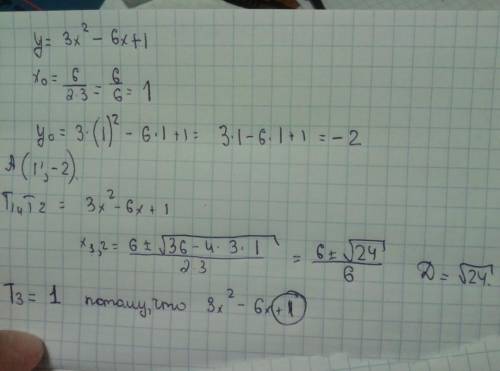 y = 3x² - 6x + 1
x₀ = 6/2·3 = 6/6 = 1
y₀ = 3·(1)² - 6·1 + 1 = 3·1 - 6·1 + 1 = -2
A (1; -2)
T₁ и T₂ = 3x² - 6x + 1
x₁,₂ = 6 ± √36 - 4·3·1 / 2·3 = 6 ± √24 / 6 Д = √24
T₃ = 1 потому, что 3x² - 6x + 1